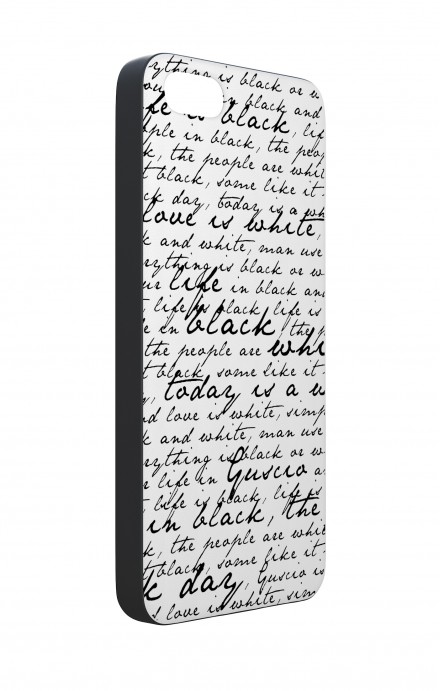 rything is black or w
black and
fe is black, life
ple in black, the peop
k, the people are whit
t black, some like it
ck day, today is a wh
love is white,
k and white, man use
rything is black or w
ur life in black and
t life is black, life is
e in black, the p
the people are whi
t black, some like it
, today is a w
d love is white, simp
k and white, man use
rything is black or w
r life in Guscio a
t life is black, life is
in black, the
k, the people are whit
t black, some like it
k day, Guscio is
s love is white, sim